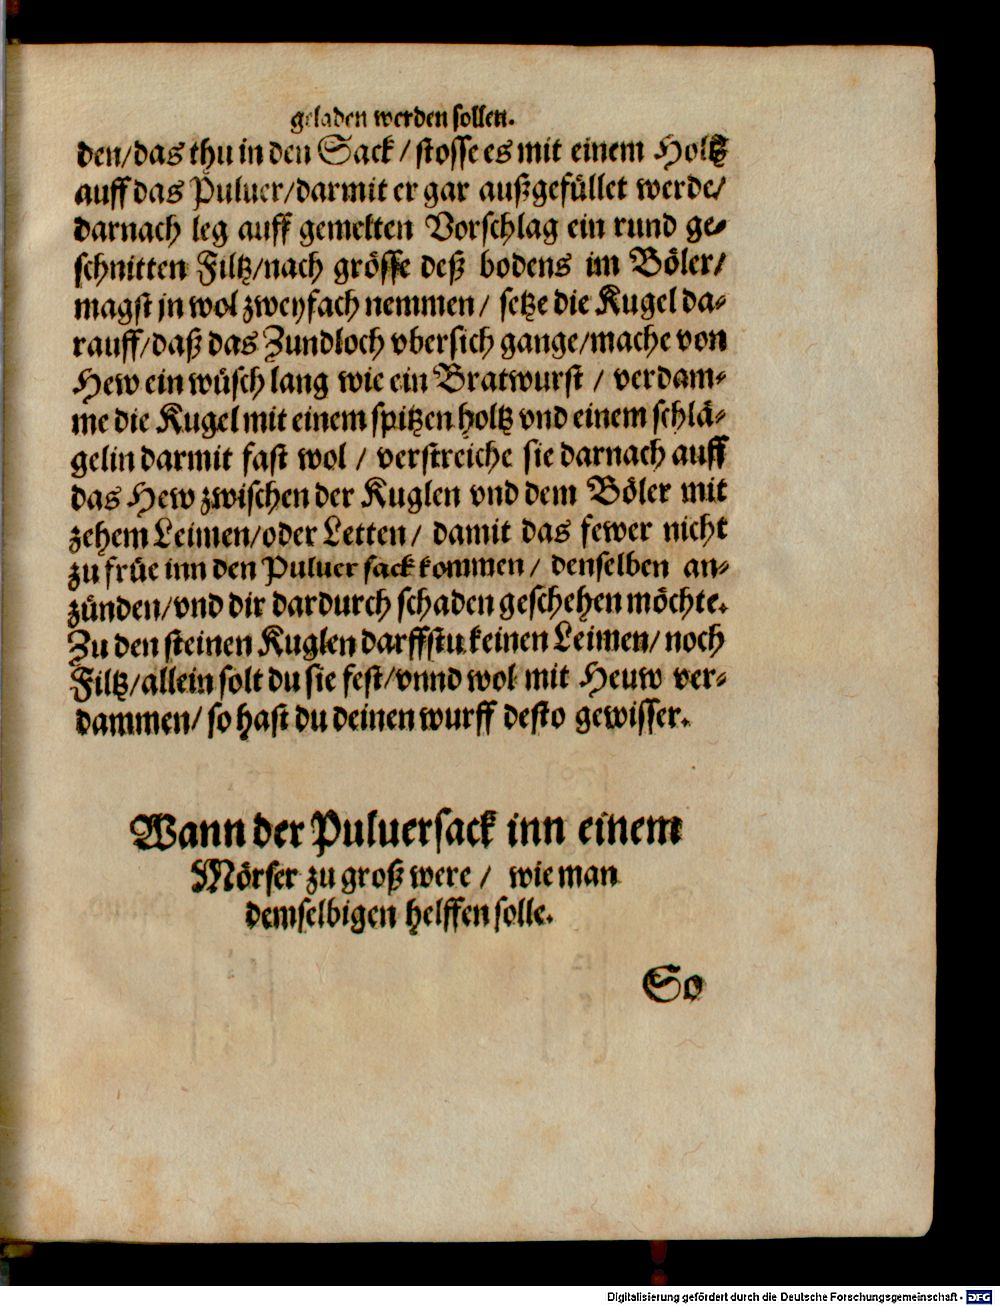 geladen werden sollen.
den/das thu in den Sack/ stosse es mit einem Holtz
auff das Puluer/darmit er gar außgefüllet werde/
darnach leg auff gemelten Vorschlag ein rund ge-
schnitten Filtz/nach grösse deß bodens im Böler/
magst jn wol zweyfach nemmen/ setze die Kugel da-
rauff/daß das Zundloch vbersich gange/mache von
Hew ein wüsch lang wie ein Bratwurst / verdam-
me die Kugel mit einem spitzen holtz vnd einem schlä-
gelin darmit fast wol / verstreiche sie darnach auff
das Hew zwischen der Kuglen vnd dem Böler mit
zehem Leimen/oder Letten/ damit das fewer nicht
zu früe inn den Puluer sack kommen/ denselben an-
zünden/vnd dir dardurch schaden geschehen möchte.
Zu den steinen Kuglen darffstu keinen Leimen/ noch
Filtz/allein solt du sie fest/vnnd wol mit Heuw ver-
dammen/ so hast du deinen wurff desto gewisser.
Wann der Puluersack inn einem
Mörser zu groß were / wie man
demselbigen helffen solle.
So
Digitalisierung gefördert durch die Deutsche Forschungsgemeinschaft - DFG